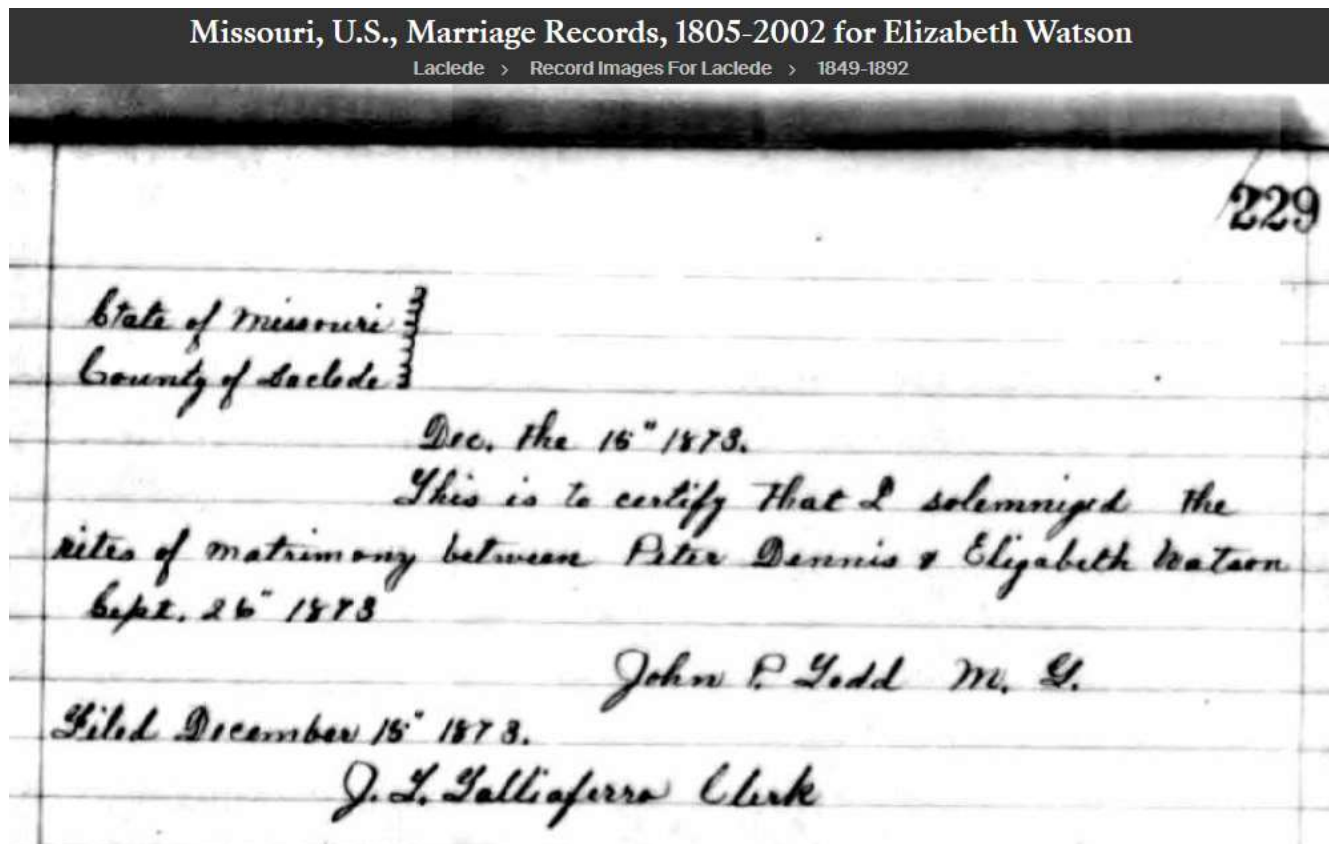 Missouri, U.S., Marriage Records, 1805-2002 for Elizabeth Watson
Laclede > Record Images For Laclede > 1849-1892
229
State of Missouri
County of Laclede
Dec. the 15" 1873.
This is to certify that I solemnized the
rites of matrimony between Peter Dennis & Elizabeth Watson
Sept. 26" 1873
John P. Todd M. G.
Filed December 15" 1873.
J. T. Talliaferro Clerk